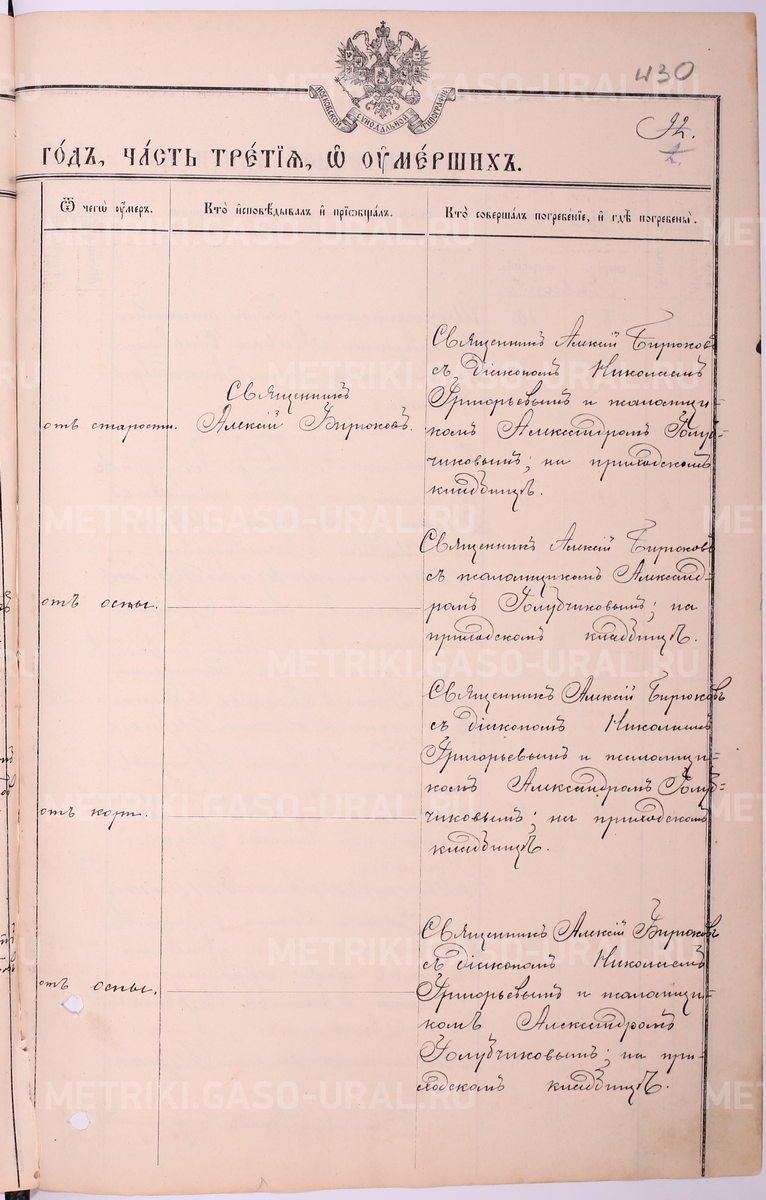 430
МОСКОВСКОЙ СѴНОДАЛЬНОЙ ТИПОГРАФІИ
92.
го́дъ, ча́сть тре́тїѧ, ѡ҆ ᲂу҆ме́ршихъ.
Ѿ чегѡ̀ ᲂу҆́меръ.
Кто̀ и҆сповѣ́дывалъ и҆ прїѡбща́лъ.
Кто̀ соверша́лъ погребе́нїе, и҆ гдѣ̀ погребены̀.
отъ старости.
Священникъ
Алексій Бирюковъ.
Священникъ Алексій Бирюковъ
съ діакономъ Николаемъ
Григорьевымъ и псаломщи-
комъ Александромъ Голуб-
чиковымъ; на приходскомъ
кладбищѣ.
отъ оспы.
Священникъ Алексій Бирюковъ
съ псаломщикомъ Александ-
ромъ Голубчиковымъ; на
приходскомъ кладбищѣ.
отъ кори.
Священникъ Алексій Бирюковъ
съ діакономъ Николаемъ
Григорьевымъ и псаломщи-
комъ Александромъ Голуб-
чиковымъ; на приходскомъ
кладбищѣ.
отъ оспы.
Священникъ Алексій Бирюковъ
съ діакономъ Николаемъ
Григорьевымъ и псаломщи-
комъ Александромъ
Голубчиковымъ; на при-
ходскомъ кладбищѣ.
METRIKI.GASO-URAL.RU